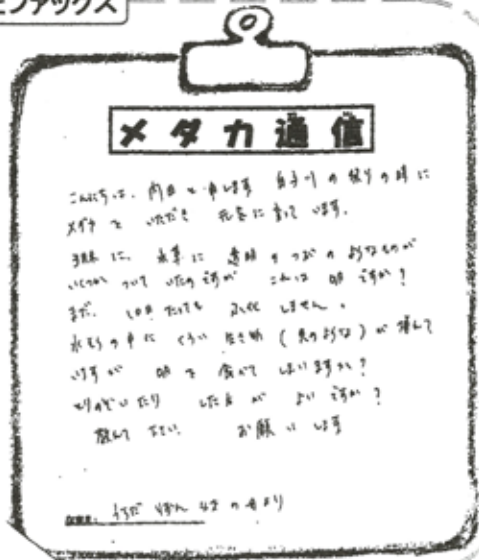 ファックス
メダカ通信
こんにちは、内田と申します 白子川の祭りの時に
メダカを いただき 元気に育って います。
3日前に、水草に 透明 のつぶ のようなものが
いくつか ついて いたのですが これは 卵 ですか?
まだ、10日 たっても ふ化 しません。
水そうの中に くろい 生き物 (貝のような) が 増えて
いますが 卵 を 食べて しまいますか?
とりのぞいたり した方 が よい ですか?
教えて 下さい。 お願い します
うちだ 4才 の母より